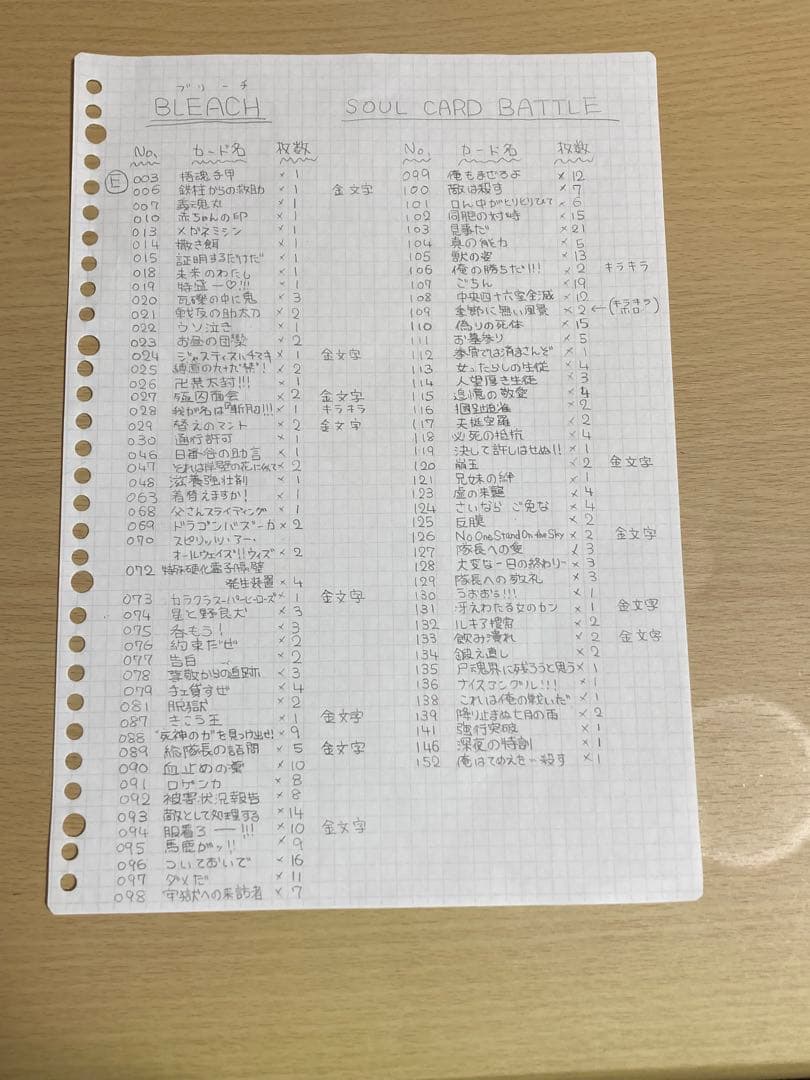 ブリーチ
BLEACH SOUL CARD BATTLE
No. カード名 枚数
E 003 悟魂手甲 ×1
006 鉄柱からの救助 ×1 金文字
007 義魂丸 ×1
010 赤ちゃんの印 ×1
013 メガネミシン ×1
014 撒き餌 ×1
015 証明するだけだ ×1
018 未来のわたし ×1
019 特盛一♡!!! ×1
020 瓦礫の中に鬼 ×3
021 戦友の助太刀 ×2
022 ウソ泣き ×1
023 お昼の団欒 ×2
024 ジャスティスハチマキ ×1 金文字
025 縛道の九十九"禁"! ×2
026 卍禁太封!!! ×1
027 殛囚面会 ×2 金文字
028 我が名は『斬月』!!! ×1 キラキラ
029 替えのマント ×2 金文字
030 通行許可 ×1
046 日番谷の助言 ×1
047 それは岸壁の花に似て ×2
048 滋養強壮剤 ×1
063 着替えますか! ×1
068 父さんスライディング ×1
069 ドラゴンバズーカ ×2
070 スピリッツ・アー・
オールウェイズ!!ウィズ ×2
072 特殊硬化電子障壁
発生装置 ×4
073 カラクラスーパーヒーローズ ×1 金文字
074 星と野良犬 ×3
075 呑もう! ×3
076 約束だぜ ×2
077 告白 ×2
078 尊敬からの追跡 ×3
079 手ェ貸すぜ ×4
081 脱獄 ×2
087 きこう王 ×1 金文字
088 "死神の力"を見つけ出せ! ×9
089 総隊長の詰問 ×5 金文字
090 血止めの薬 ×10
091 口ゲンカ ×8
092 被害状況報告 ×8
093 敵として処理する ×14
094 服着ろ――!!! ×10 金文字
095 馬鹿がッ!! ×9
096 ついておいで ×16
097 ダメだ ×11
098 牢獄への来訪者 ×7
No. カード名 枚数
099 俺もまぜろよ ×12
100 敵は殺す ×7
101 口ん中がヒリヒリひて ×6
102 同胞の対峙 ×15
103 見事だ ×21
104 真の能力 ×5
105 獣の姿 ×13
106 俺の勝ちだ!!! ×2 キラキラ
107 ごちん ×19
108 中央四十六室全滅 ×12
109 季節に無い風景 ×2 ←(キラキラホロ)
110 偽りの死体 ×15
111 お墓参り ×5
112 拳骨では済まさんぞ ×1
113 女ったらしの生徒 ×4
114 人望厚き生徒 ×3
115 追憶の敬愛 ×4
116 摑趾追雀 ×2
117 天挺空羅 ×2
118 必死の抵抗 ×4
119 決して許しはせぬ!! ×1
120 崩玉 ×2 金文字
121 兄妹の絆 ×1
123 虚の来襲 ×4
124 さいなら ご免な ×4
125 反膜 ×2
126 No One Stand On the Sky ×2 金文字
127 隊長への愛 ×3
128 大変な一日の終わりー ×3
129 隊長への敬礼 ×3
130 うおおお!!! ×1
131 冴えわたる女のカン ×1 金文字
132 ルキア捜索 ×2
133 飲み潰れ ×2 金文字
134 鍛え直し ×2
135 尸魂界に残ろうと思う ×1
136 ナイスアングル!!! ×1
138 これは俺の戦いだ ×1
139 降り止まぬ七月の雨 ×2
141 強行突破 ×1
146 深夜の特訓 ×1
152 俺はてめえを一殺す ×1